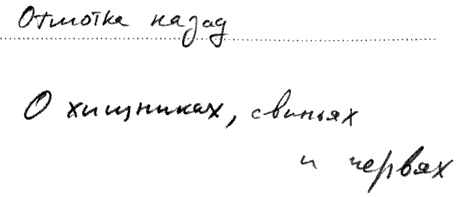 Отмотка назад
О хищниках, свиньях
и червях